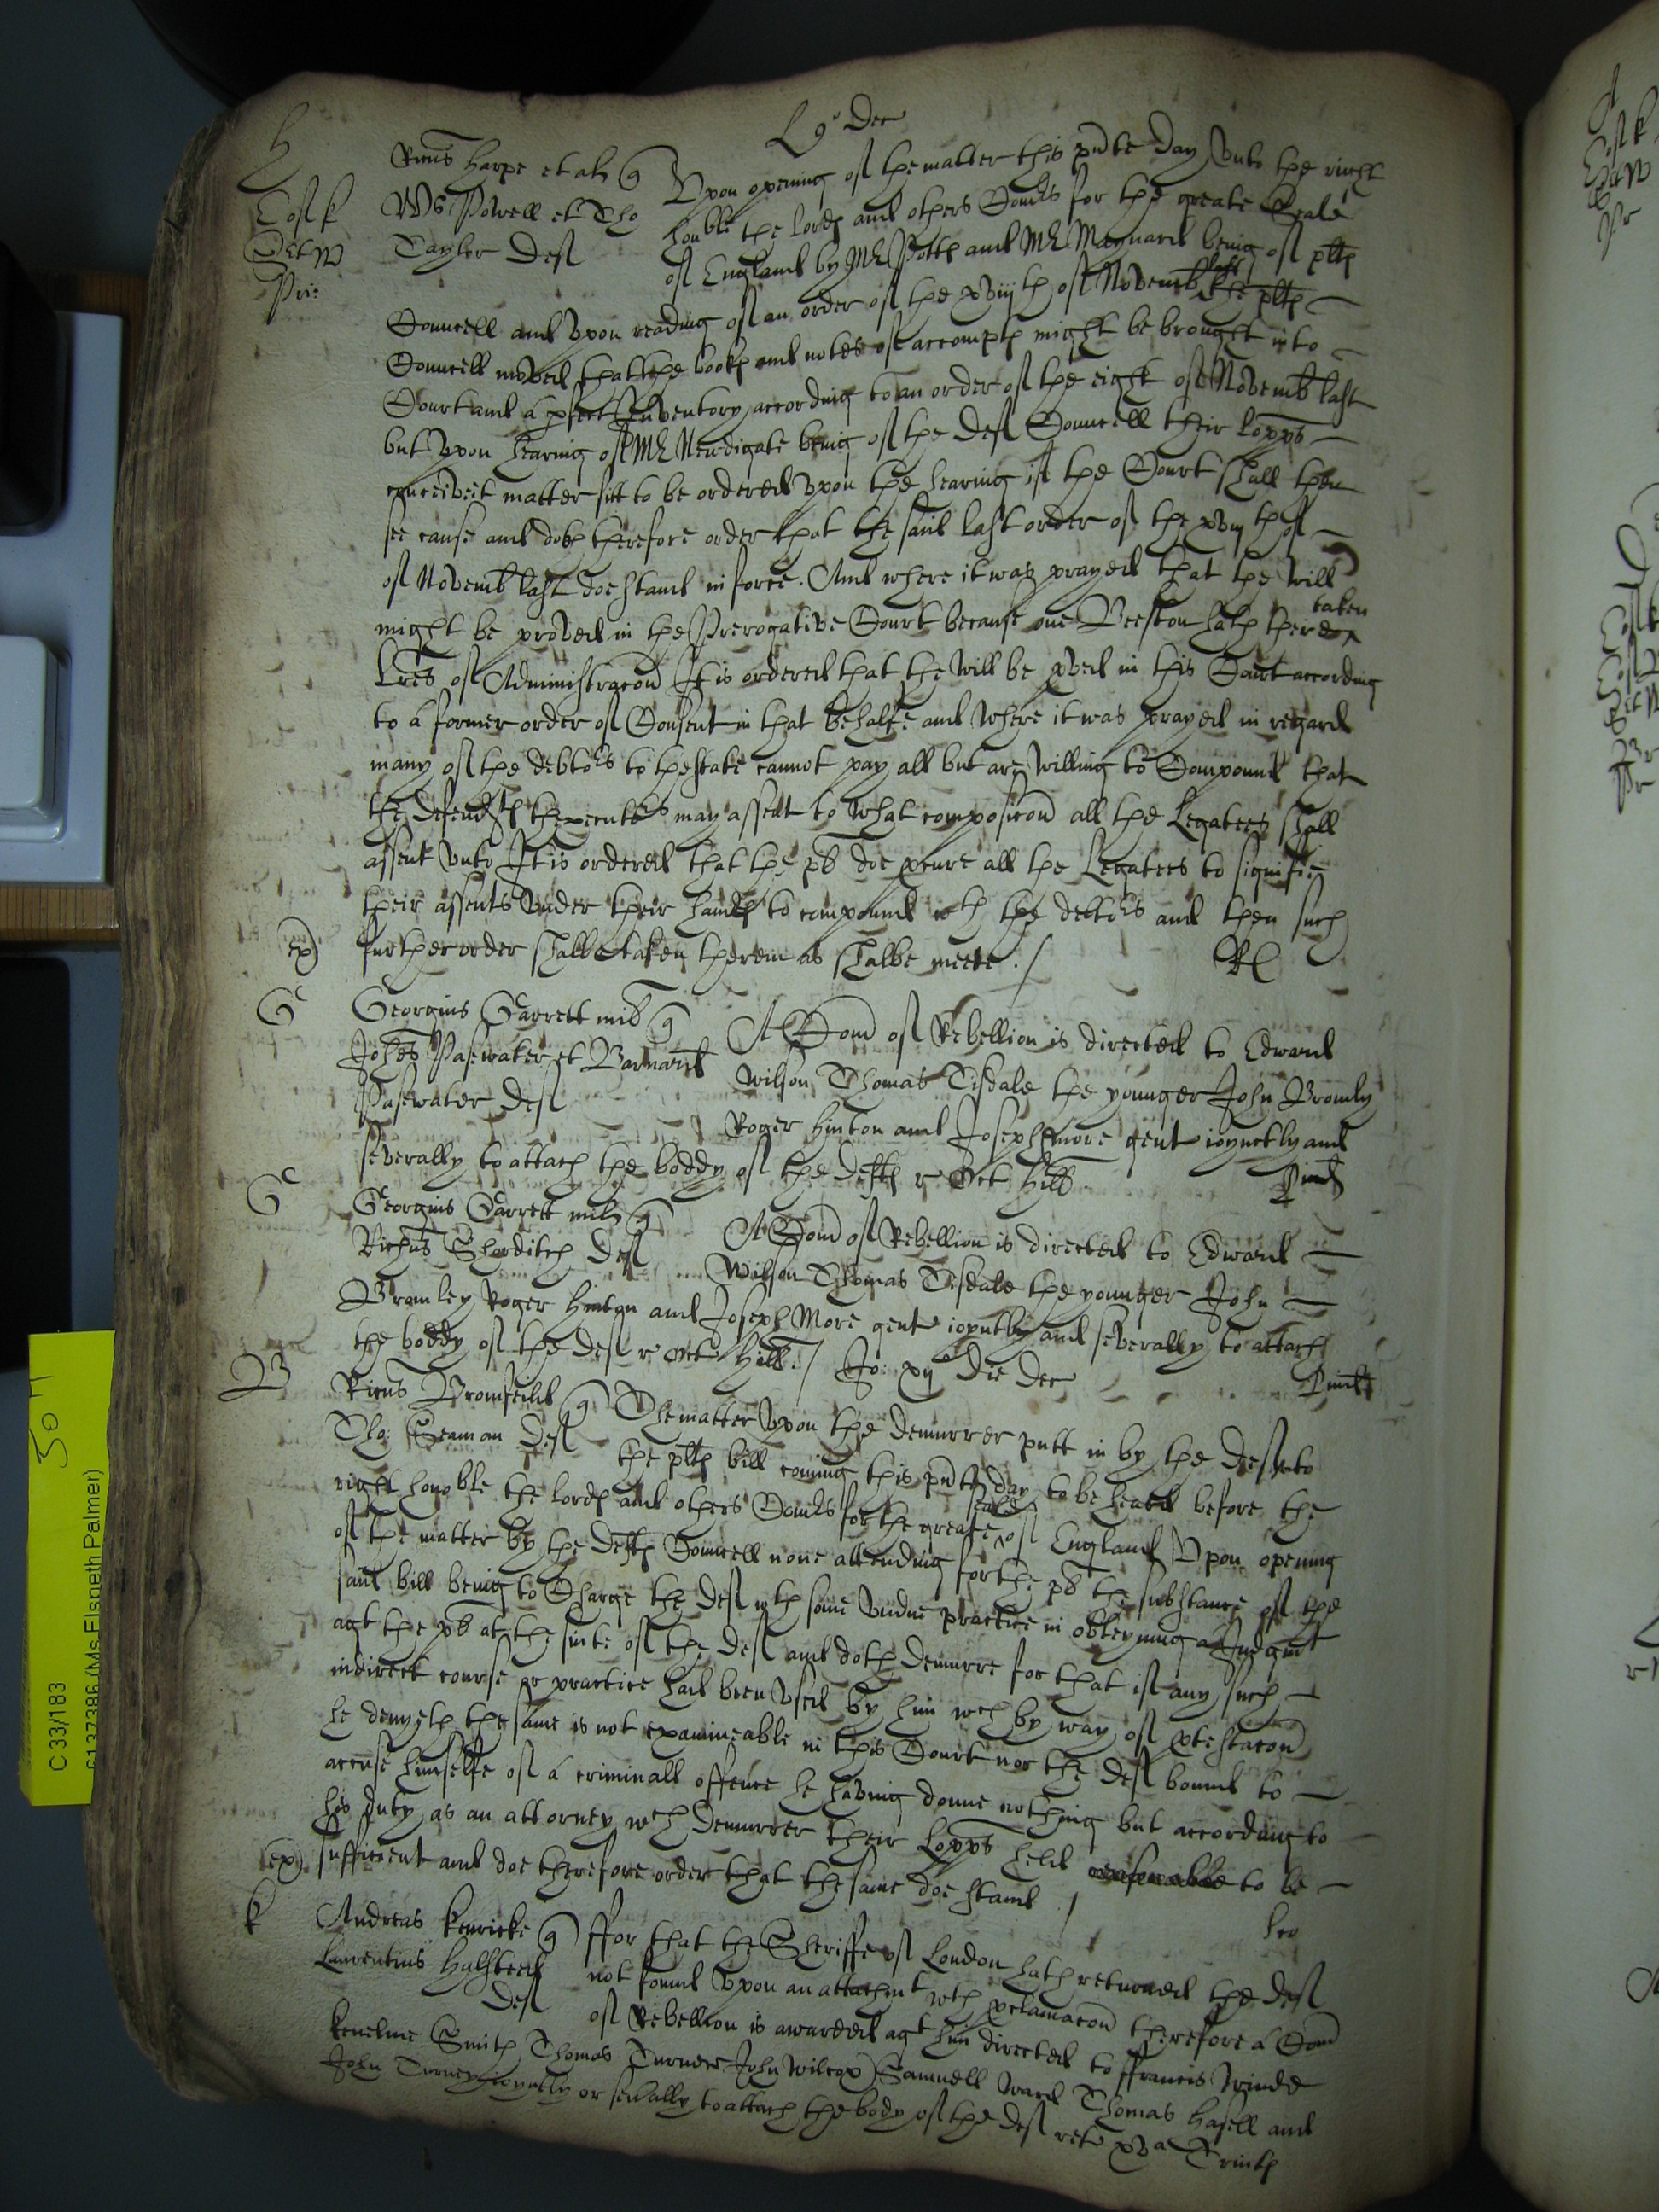 L 9º Dec
H
Ricus Harpe et al q
Cost k
Ws Powell et Tho
Taylor Def
Upon opening of the matter this pnte day Vnto the right
hoble the lords and others Comrs for the greate Seale
of England by Mr Potts and Mr Maynard being of pltfs
Councell and Vpon reading of an order of the xviijth of Novemb last the pltfs
Councell moved that the books and notes of accompts might be brought into
Court and a pfect Inventory according to an order of the eight of Novemb last
but Vpon hearing of Mr Newdigate being of the Def Councell their Lopps
conceiveit matter fitt to be ordered Vpon the hearing if the Court shall then
see cause and doth therefore order that the said last order of the xviijth of
of Novemb last doe stand in force. And where it was prayed that the Will
might be proved in the Prerogative Court because one Beeston hath there taken
Lres of Administracon It is ordered that the Will be pved in this Court according
to a former order of Consent in that behalfe and where it was prayed in regard
many of the debtors to thestate cannot pay all but are willing to Compound that
the defendts thexecutors may assent to what composicon all the Legatees shall
assent vnto It is ordered that the pl doe pcure all the Legatees to signifie
their assents Vnder their hands to compound wth the debtors and then such
further order shalbe taken therein as shalbe meete ./
ex)
G
Georgius Garrett mil q
Johes Pasewater et Barnard
Pasewater Def
A Com of Rebellion is directed to Edward
Wilson Thomas Tisdale the younger John Bromly
Roger Hinton and Joseph more gent ioynctly and
severally to attach the boddy of the defts r Oct Hill
G
Georgius Garrett mil q
Richus Sharditch Def
A Com of Rebellion is directed to Edward
Wilson Thomas Tisdale the younger John
Bramley Roger Hinton and Joseph More gent ioyntly and severally to attach
the boddy of the def r Oct Hill. / Jo: xij die Dec
B
Ricus Bromfeild q
Tho: Seaman Def
The matter Vpon the demurrer putt in by the Def vnto
the pltfs bill coming this pnte day to be heard before the
right honoble the lords and others Comrs for the greate seale of England Vpon opening
of the matter by the defts Councell none attending for the pl the substance of the
said bill being to Charge the def wth some Vndue practice in obteyning a Judgmt
agt the pl at the suite of the def and doth demurre for that if any such
indirect course or practice had been Vsed by him wch by way of ptestacon
he denyeth the same is not examineable in this Court nor the def bound to
accuse himselfe of a criminall offence he having donne nothing but according to
his duty as an attorney wch demurrer their Lopps held to be
sufficient and doe therefore order that the same doe stand ./
ex)
K
Andreas Kenricke q
Laurentius Halsteed
Def
ffor that the Sheriffe of London hath returned the def
not found Vpon an attachmt wth pclamacon therefore a Com
of Rebellion is awarded agt him directed to ffrancis Winde
Kenelme Smith Thomas Turner John Wilcox Samuell Ward Thomas Hasell and
John Turney ioyntly or sevally to attach the body of the def ret xva Trinit
C 33/183
(Ms Elspeth Palmer)